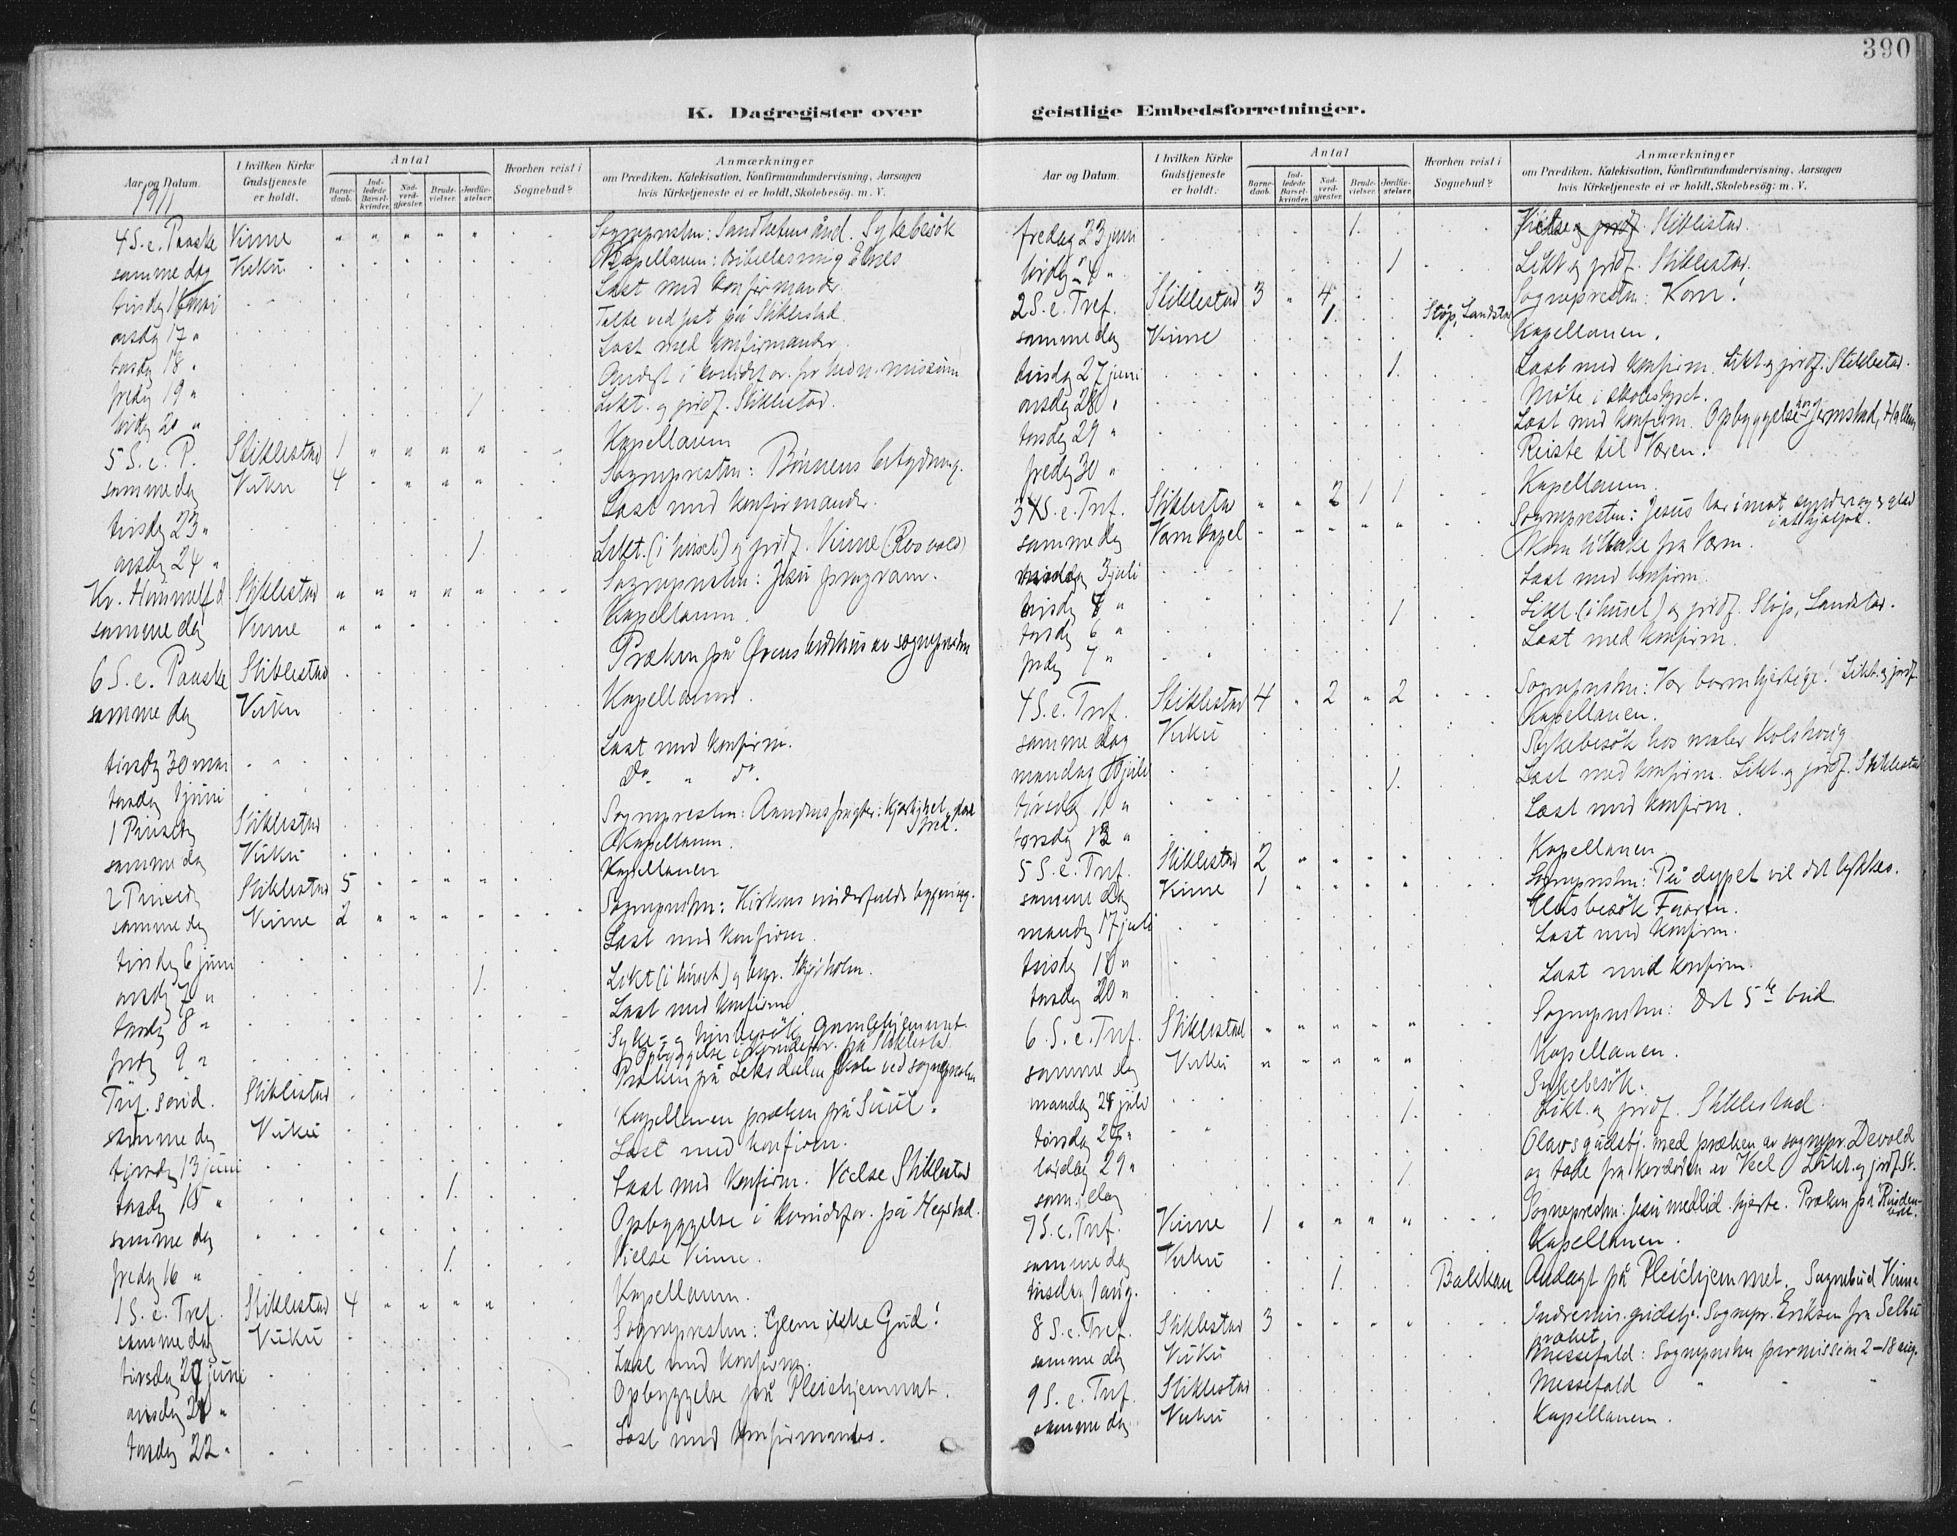 390
K. Dagregister over geistlige Embedsforretninger.
Aar og Datum.
I hvilken Kirke Gudstjeneste er holdt.
Antal
Barnedaab.
Indledede Barselkvinder.
Nadverdgjæster.
Brudevielser.
Jordfæstelser.
Hvorhen reist i Sognebud?
Anmærkninger
om Prædiken, Katekisation, Konfirmandundervisning, Aarsagen
hvis Kirketjeneste ei er holdt, Skolebesøg m. V.
1911
4 S. e. Paaske Vinne " " " " " Sognepresten: Sandhetens ånd. Sykebesök
samme dag Vuku Kapellanen: Bibellæsning Enes
tirsdag 16 mai Læst med konfirmander.
onsdag 17 " Tale ved fest på Stiklestad.
torsdag 18 " Læst med konfirmander.
fredag 19 " Andagt i kvindefor. for hedn. mission
lördag 20 " 1 Likt. og jordf. Stiklestad.
5 S. e. P. Stiklestad 1 " " " " Kapellanen
samme dag Vuku 4 " " " " Sognepresten: Bönnens betydning.
tirsdag 23 " Læst med konfirmander.
onsdag 24 " 1. Likt. (i huset) og jordf. Vinne (Rosvold)
Kr. Himmelf.d. Stiklestad " " " " " Sognepresten: Jesu program.
samme dag Vinne " " " Kapellanen.
6 S. e. Paaske Stiklestad Præken på bedehus av sognepresten
samme dag Vuku Kapellanen.
tirsdag 30 mai Læst med konfirm.
torsdag 1 juni Do. " do.
1 Pinsedag Stiklestad Sognepresten: Aandens frugter: Kjærlighet, glæde, fred.
samme dag Vuku Kapellanen.
2 Pinsedag Stiklestad 5 " " " " Kapellanen
samme dag Vinne 2 " " " " Sognepresten: Kirkens vidunderfulde bygning.
tirsdag 6 juni Læst med konfirm.
onsdag 7 " 1. Likt (i huset) og begr. Skjörholm.
torsdag 8 " Læst med konfirm.
fredag 9 " Syke- og husbesök Gamlehjemmet.
Opbyggelse i kvindefor. på Stiklestad
Tref. sönd. Stiklestad Præken på Leksdalen skole ved sognepresten
samme dag Vuku Kapellanen præken på Suul.
tirsdag 13 juni Læst med konfirm.
torsdag 15 " 1. Læst med konfirm. Vielse Stiklestad
samme dag Opbyggelse i kvindefor. på Hegstad.
fredag 16 " 1. Vielse Vinne.
1 S. e. Tref. Stiklestad 4 " " " " Kapellanen.
samme dag Vuku Sognepresten: Glem ikke Gud!
tirsdag 20 juni Læst med konfirm.
onsdag 21 " Opbyggelse på Pleiehjemmet.
torsdag 22 " Læst med konfirmander.
Aar og Datum.
I hvilken Kirke Gudstjeneste er holdt.
Antal
Barnedaab.
Indledede Barselkvinder.
Nadverdgjæster.
Brudevielser.
Jordfæstelser.
Hvorhen reist i Sognebud?
Anmærkninger
om Prædiken, Katekisation, Konfirmandundervisning, Aarsagen
hvis Kirketjeneste ei er holdt, Skolebesøg: m. V.
fredag 23 juni 1. Vielse og jordf. Stiklestad.
lördag 24 " 1 Likt og jordf. Stiklestad.
2 S. e. Tref. Stiklestad 3 " 4 Sognepresten: Kom!
samme dag Vinne 1. Stöp, Landstad Kapellanen.
tirsdag 27 juni 1. Læst med konfirm. Likt. og jordf. Stiklestad.
onsdag 28 " Möte i skolestyret.
torsdag 29 " Læst med konfirm. Opbyggelse hos Jermstad, Hallem
fredag 30 " Reiste til Væren.
3 S. e. Tref. Stiklestad " " 2 1 1 Kapellanen.
samme dag Værn Kapel " " " " " Sognepresten: Jesus tar imot syndere
mandag 3 juli Kom tilbake fra Væren.
tirsdag 4 " Læst med konfirm.
torsdag 6 " 1 Likt (i huset) og jordf. Stöp, Landstad.
fredag 7 " Læst med konfirm.
4 S. e. Tref. Stiklestad 4 " 2 " 2 Sognepresten: Vær barmhjertige! Likt. og jordf.
samme dag Vuku Kapellanen.
mandag 10 juli Sykebesök hos maler Kolshaug
tirsdag 11 " 1. Læst med konfirm. Likt. og jordf. Stiklestad
torsdag 13 " Læst med konfirm.
5 S. e. Tref. Stiklestad 2 " " " " Kapellanen.
samme dag Vinne 1 " " " " Sognepresten: På dypet vil det lykkes.
mandag 17 juli Husbesök Faaren.
tirsdag 18 " Læst med konfirm.
torsdag 20 " Læst med konfirm.
6 S. e. Tref. Stiklestad " " " " " Sognepresten: Det 5te bud
samme dag Vuku " " " " " Kapellanen.
mandag 24 juli Sykebesök.
torsdag 26 " 1. Likt. og jordf. Stiklestad
lördag 29 " Olavsgudstj. med præken av sognepr. Devold
og tale fra kordören av Veel
sam. dag 1. Likt. og jordf. St.
7 S. e. Tref. Vinne 1 " " " " Sognepresten: Jesu medlid. hjerte. Præken på
samme dag Vuku Kapellanen.
tirsdag 1 aug. 1. Balhkau Andagt på Pleiehjemmet. Sognebud Vinne
8 S. e. Tref. Stiklestad 3 " " " " Indremis. gudstj. Sognepr. Eriksen fra Selbu præket
samme dag Vuku Messefald: Sognepresten permission 2–18 aug.
9 S. e. Tref. Stiklestad Messefald " " "
samme dag Vuku Kapellanen.